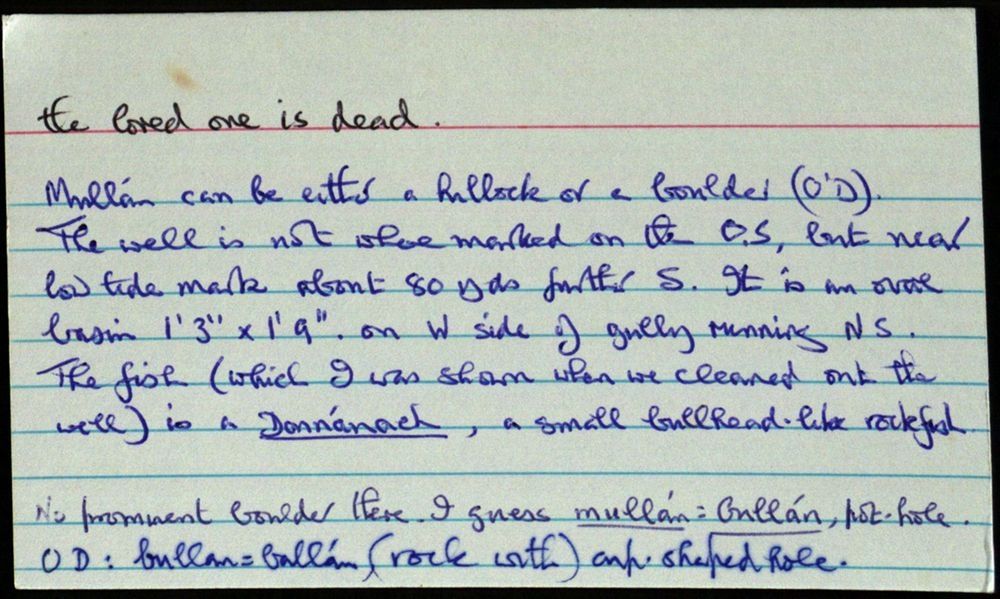 the loved one is dead.
Mullán can be either a hillock or a boulder (O'D).
The well is not where marked on the O.S, but near
low tide mark about 80 yds further S. It is an oval
basin 1'3" x 1'9". on W side of gully running N S.
The fish (which I was shown when we cleaned out the
well) is a Donnánach, a small bullhead-like rockfish
No prominent boulder there. I guess mullán = bullán, pot-hole.
OD: bullan = ballán (rock with) cup-shaped hole.